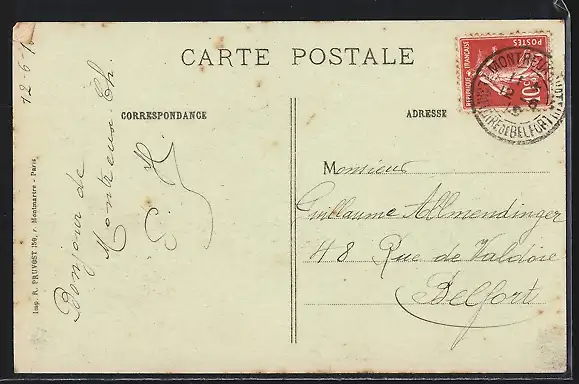 12-6-16
CARTE POSTALE
CORRESPONDANCE
ADRESSE
POSTES
REPUBLIQUE FRANÇAISE
10
MONTREUX
BELFORT
Bonjour de
Montreux-Ch
Monsieur
Guillaume Allmendinger
48 Rue de Valdoie
Belfort
Imp. R. PRUVOST 159, r. Montmartre - Paris